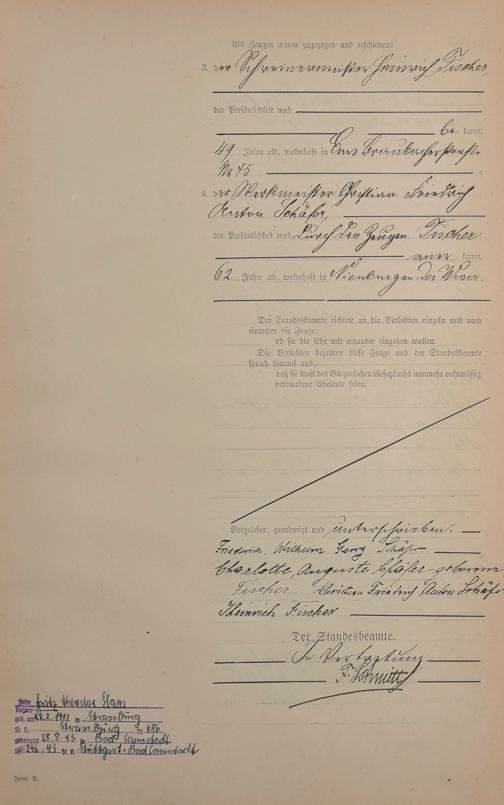 Als Zeugen waren zugezogen und erschienen:
3. der Schreinermeister Heinrich Fischer,
der Persönlichkeit nach
be kannt,
49 Jahre alt, wohnhaft in Ems Braubacherstraße
Nr. 45 ;
4. der Werkmeister Christian Friedrich
Anton Schäfer,
der Persönlichkeit nach durch den Zeugen Fischer
aner kannt,
62 Jahre alt, wohnhaft in Nienburg an der Weser.
Der Standesbeamte richtete an die Verlobten einzeln und nach
einander die Frage:
ob sie die Ehe mit einander eingehen wollen.
Die Verlobten bejahten diese Frage und der Standesbeamte
sprach hierauf aus,
daß sie kraft des Bürgerlichen Gesetzbuchs nunmehr rechtmäßig
verbundene Eheleute seien.
Vorgelesen, genehmigt und unterschrieben.
Friedrich Wilhelm Georg Schäfer
Charlotte, Auguste Schäfer geborene
Fischer Christian Friedrich Anton Schäfer
Heinrich Fischer
Der Standesbeamte.
In Vertretung
F. Schmitt
Fritz
geb. am 1911 in Strassburg
St. A. Strassburg Nr. 686
28.8.43 in Bad Cannstatt
246/43 St. A. Stuttgart-Bad Cannstatt
Form. B.